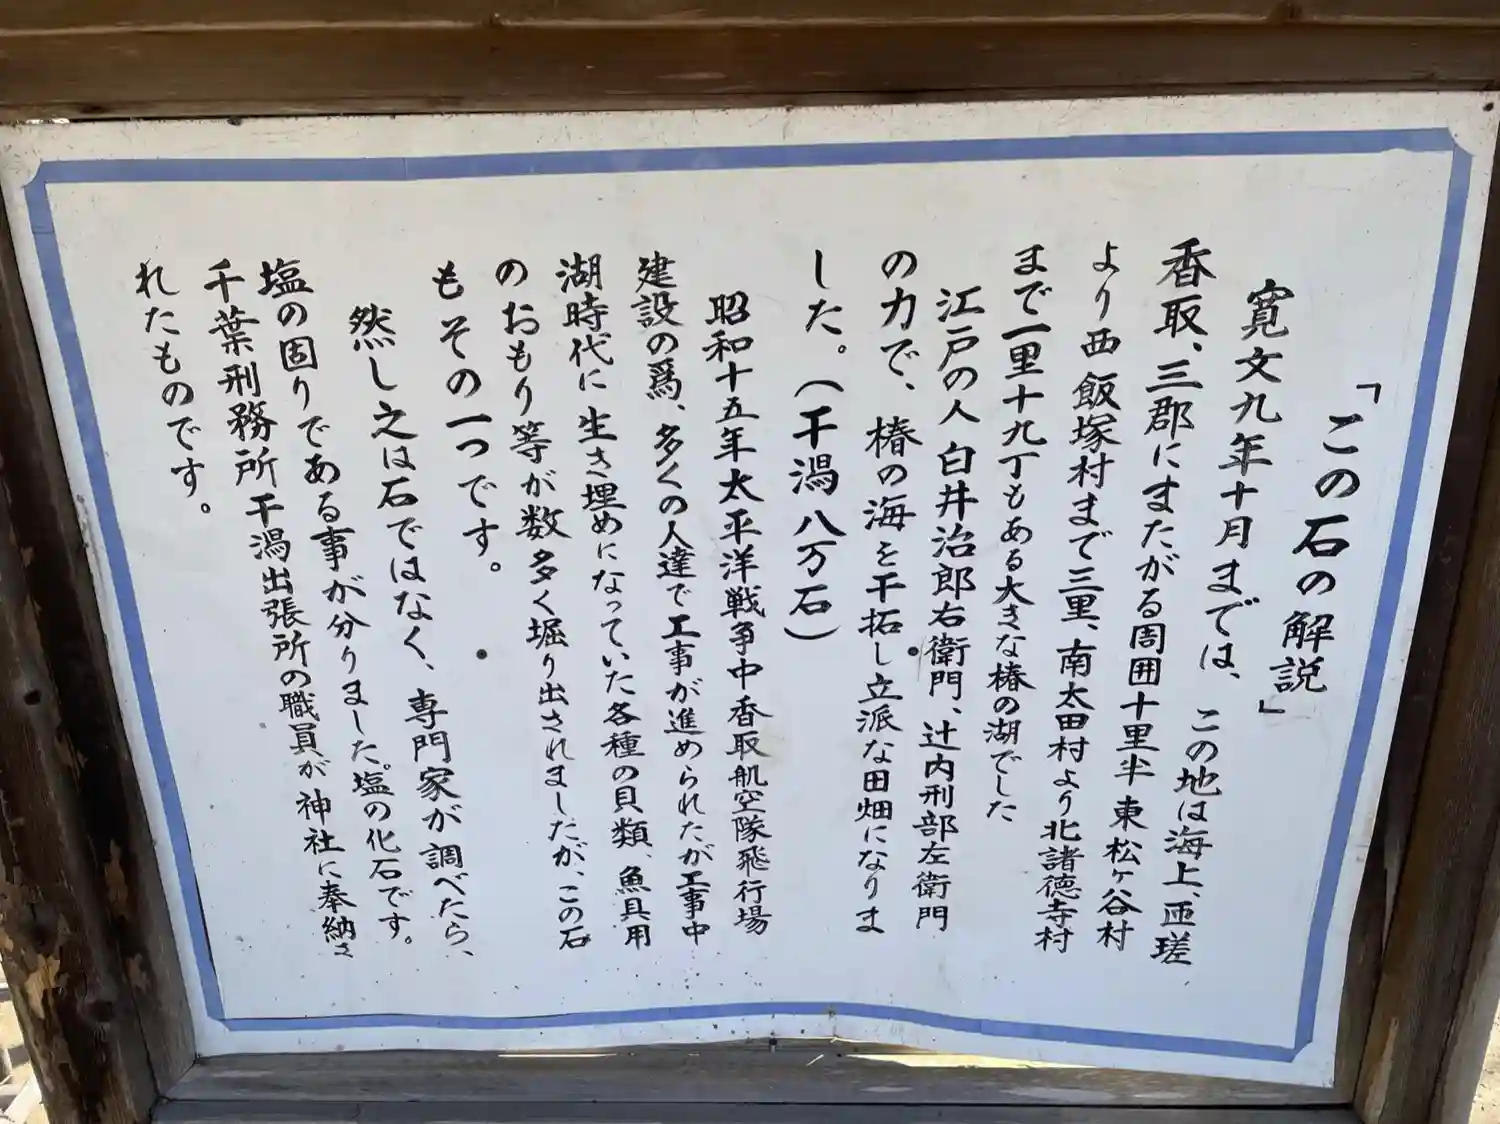 「この石の解説」
寛文九年十月までは、この地は海上、匝瑳
香取、三郡にまたがる周囲十里半 東松ヶ谷村
より西 飯塚村まで三里、南太田村より北諸徳寺村
まで一里十九丁もある大きな椿の湖でした
江戸の人 白井治郎右衛門、辻内刑部左衛門
の力で、椿の海を干拓し立派な田畑になりま
した。（干潟八万石）
昭和十五年太平洋戦争中香取航空隊飛行場
建設の爲、多くの人達で工事が進められたが工事中
湖時代に生き埋めになっていた各種の貝類、魚具用
のおもり等が数多く堀り出されましたが、この石
もその一つです。
然し之は石ではなく、専門家が調べたら、
塩の固りである事が分りました。塩の化石です。
千葉刑務所干潟出張所の職員が神社に奉納さ
れたものです。